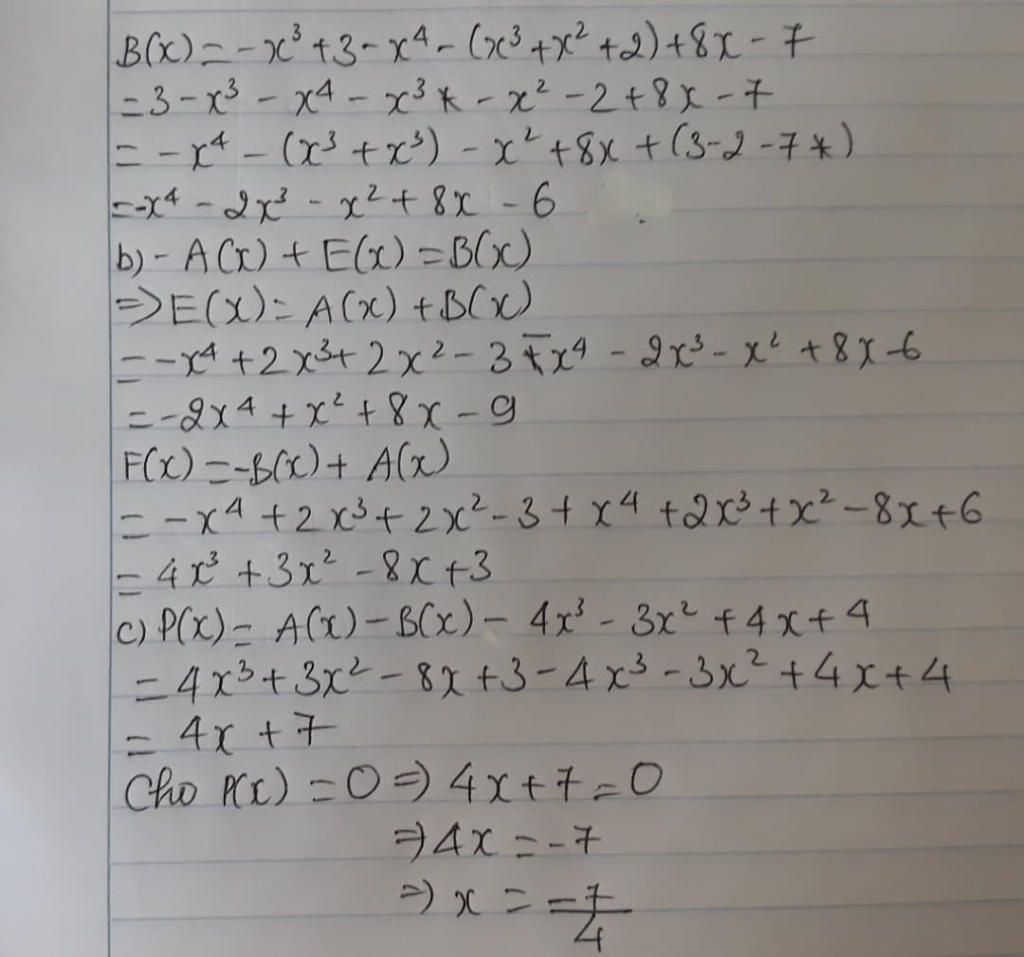 B(x) = -x³ + 3 - x⁴ - (x³ + x² + 2) + 8x - 7
= 3 - x³ - x⁴ - x³ - x² - 2 + 8x - 7
= -x⁴ - (x³ + x³) - x² + 8x + (3 - 2 - 7)
= -x⁴ - 2x³ - x² + 8x - 6
b) - A(x) + E(x) = B(x)
=> E(x) = A(x) + B(x)
= -x⁴ + 2x³ + 2x² - 3 - x⁴ - 2x³ - x² + 8x - 6
= -2x⁴ + x² + 8x - 9
F(x) = -B(x) + A(x)
= -x⁴ + 2x³ + 2x² - 3 + x⁴ + 2x³ + x² - 8x + 6
= 4x³ + 3x² - 8x + 3
c) P(x) = A(x) - B(x) - 4x³ - 3x² + 4x + 4
= 4x³ + 3x² - 8x + 3 - 4x³ - 3x² + 4x + 4
= 4x + 7
Cho P(x) = 0 => 4x + 7 = 0
=> 4x = -7
=> x = -7/4